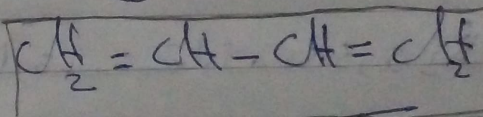 CH₂ = CH - CH = CH₂